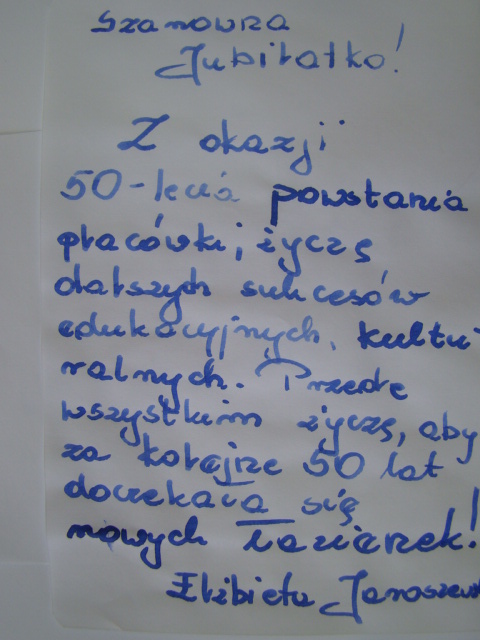 Szanowna
Jubilatko!
Z okazji
50-lecia powstania
placówki, życzę
dalszych sukcesów
edukacyjnych, kultu
ralnych. Przede
wszystkim życzę, aby
za kolejne 50 lat
doczekała się
nowych łazienek!
Elżbieta